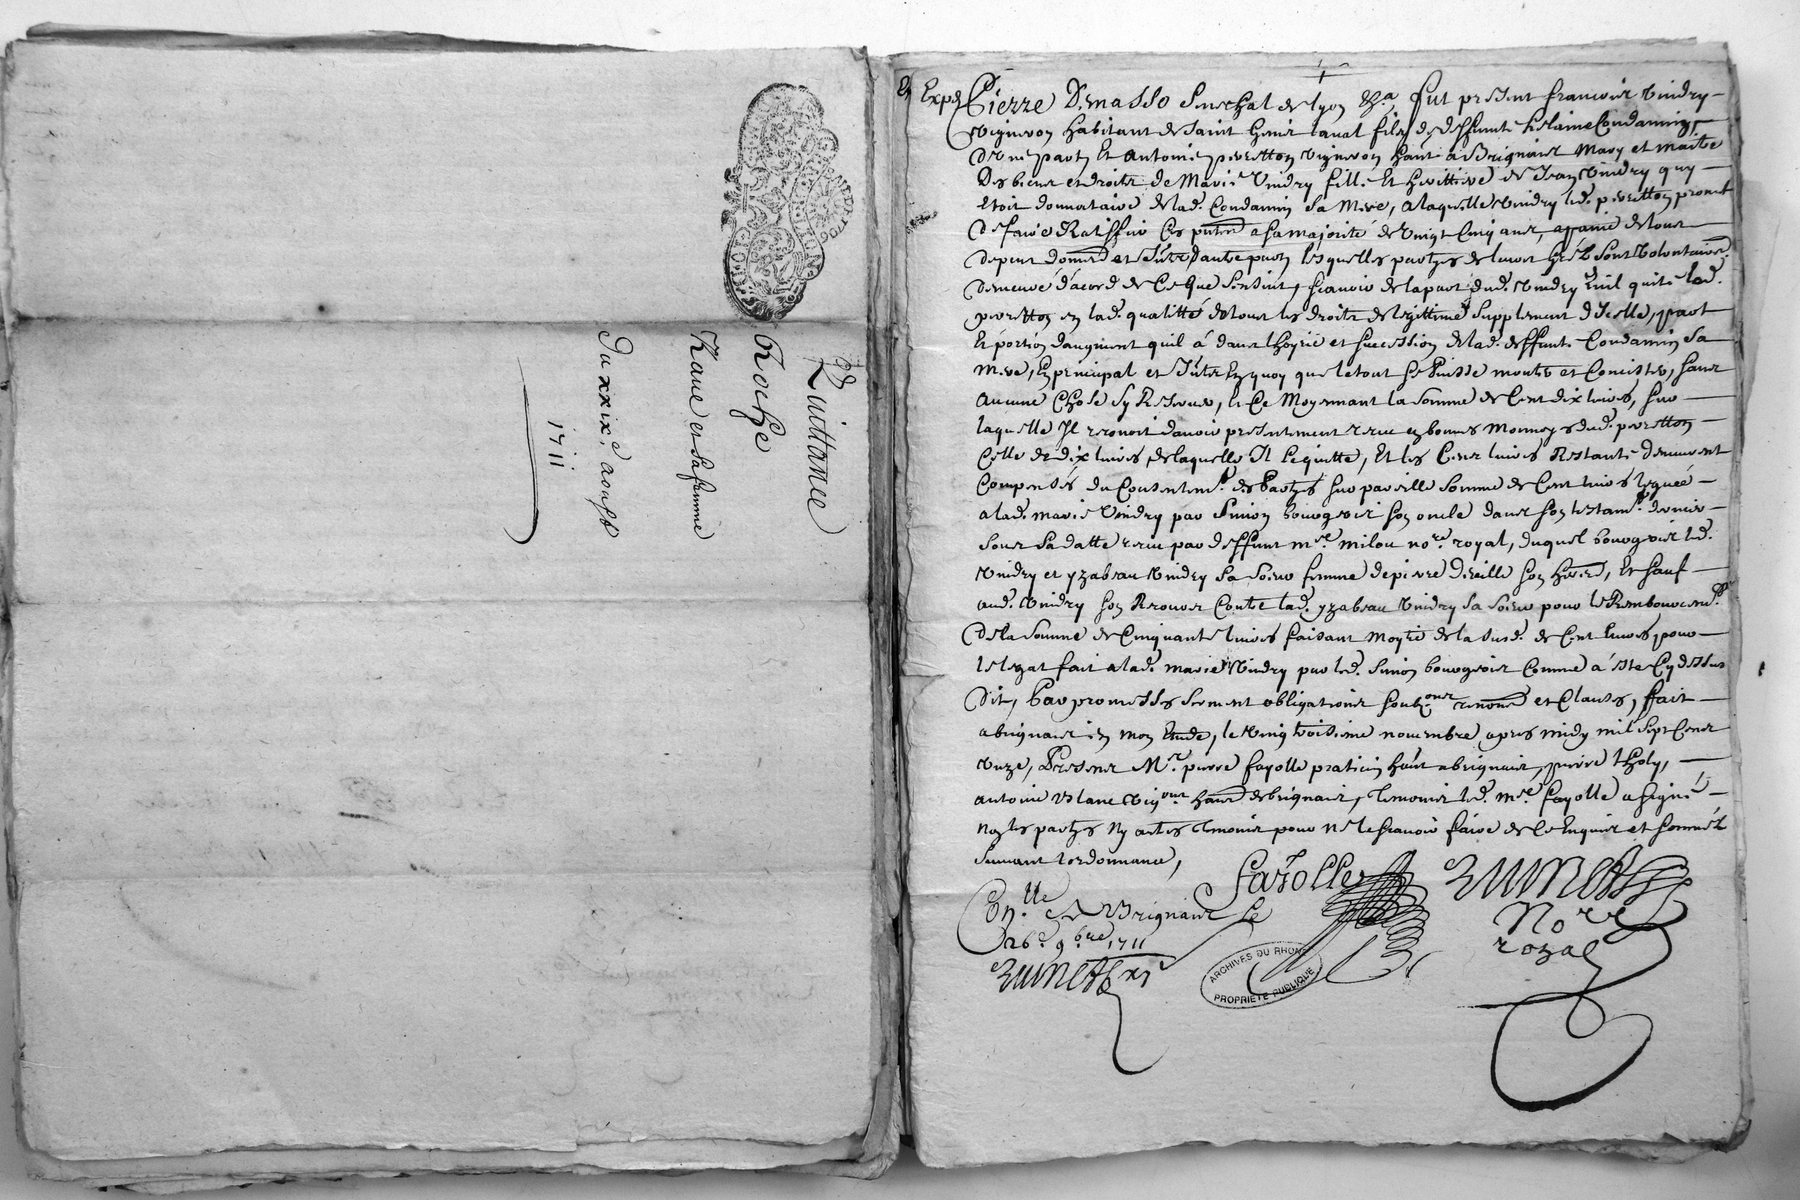 Quittance
Roche
Kaue et sa femme
du xxix.e aoust
1711
Expé Pierre Demasso Senechal de lyon &ca. fut present francois Vindry
Vigneron habitant de Saint Genis laual fils de deffunte helaine Condamin,
d'une part, Et Antoine peretton Vigneron habt. a Brignais Mary et maitre
Des biens et droits de Marie Vindry fille Et herittiere de Jean Vindry quy
Etoit donnataire de lad. Condamin Sa Mere, a laquelle Vindry led. peretton promet
De faire Ratiffier Ces pntes a sa majorité de Vingt Cinq ans, a paine de tous
depens domes et Interests dautre part, lesquelles partyes de leurs Grés Sont Volontairemt
demeuré d'acord de Ce que Sensuit, scauoir de la part dud. Vindry quil quitte led.
peretton en lad. qualitté de tous les droits de legittime Supplement d'Icelle, part
Et portion daugment quil á dans lhoyrie et succession de lad. deffunte Condamin Sa
Mere, En principal et Interests En quoy que le tout se Puisse monter et Concister, sans
Aucune Chose sy Reseruer, Et Ce Moyennant la somme de Cent dix liures, sur
laquelle Il reconoit dauoir presentement receu en bonnes monnoyes dud. peretton
Celle de dix liures, de laquelle Il le quitte, Et les Cent liures Restants demeurent
Compensés du Consentemt. des Partyes sur pareille Somme de Cent liures leguée
a lad. marie Vindry par Simon bourgeois son oncle dans son testamt. dernier
Sous Sa datte receu par deffunt me. milou nore. royal, duquel bourgeois led.
Vindry et yzabeau Vindry Sa Soeur femme de pierre dreille son heritiers, Et sauf
aud. Vindry son Recours Contre lad. yzabeau Vindry Sa Soeur pour le Rembourcemt.
De la Somme de Cinquante liures faisant moytié de la susd. de Cent liures pour
le legat fait a lad. marie Vindry par led. Simon bourgeois Comme á esté Cy dessus
Dit, Par promesses serment obligations soubmons renones et Clauses, ffait
a brignais En mon Etude, le Vingt troisieme nouembre apres midy mil sept Cens
Vnze, Presens Mr. pierre fayolle praticien habt. a brignais, pierre tholy,
antoine Blanc Vigons. habt de brignais, temoins led. me. fayolle a signé
Non les partyes Ny autres temoins pour ne le scauoir faire de Ce Enquis et sommés
Suiuant lordonnance,
fayolle
Conlle. A Brignais Le
26e. 9bre. 1711
Nore
royal
ARCHIVES DU RHONE
PROPRIETE PUBLIQUE